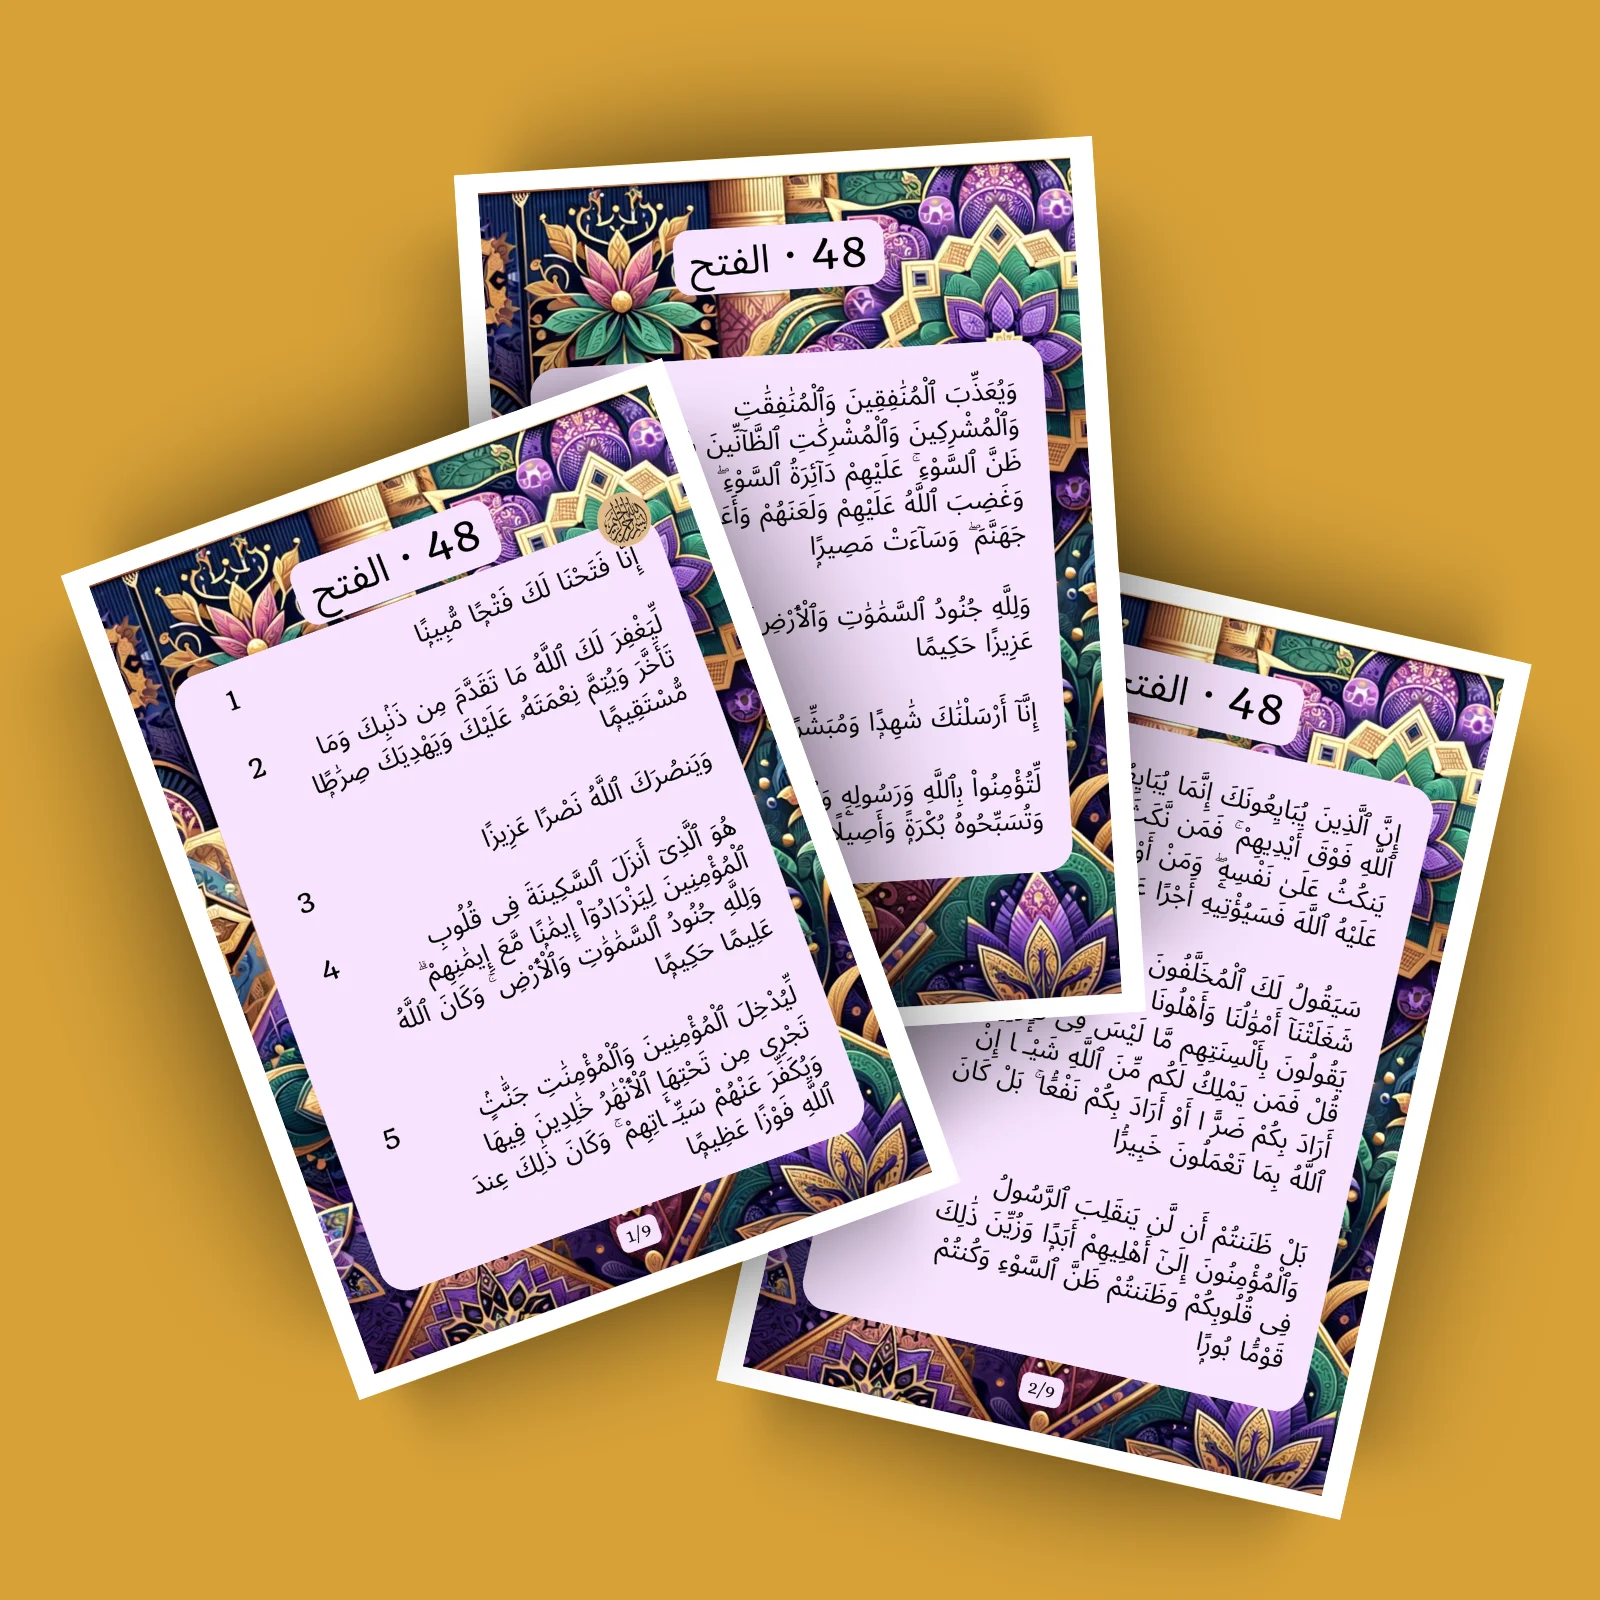 48 · الفتح
إِنَّا فَتَحْنَا لَكَ فَتْحًا مُّبِينًا
1
لِّيَغْفِرَ لَكَ ٱللَّهُ مَا تَقَدَّمَ مِن ذَنۢبِكَ وَمَا
تَأَخَّرَ وَيُتِمَّ نِعْمَتَهُۥ عَلَيْكَ وَيَهْدِيَكَ صِرَٰطًا
مُّسْتَقِيمًا
2
وَيَنصُرَكَ ٱللَّهُ نَصْرًا عَزِيزًا
3
هُوَ ٱلَّذِىٓ أَنزَلَ ٱلسَّكِينَةَ فِى قُلُوبِ
ٱلْمُؤْمِنِينَ لِيَزْدَادُوٓا۟ إِيمَٰنًا مَّعَ إِيمَٰنِهِمْ ۗ
وَلِلَّهِ جُنُودُ ٱلسَّمَٰوَٰتِ وَٱلْأَرْضِ ۚ وَكَانَ ٱللَّهُ
عَلِيمًا حَكِيمًا
4
لِّيُدْخِلَ ٱلْمُؤْمِنِينَ وَٱلْمُؤْمِنَٰتِ جَنَّٰتٍ
تَجْرِى مِن تَحْتِهَا ٱلْأَنْهَٰرُ خَٰلِدِينَ فِيهَا
وَيُكَفِّرَ عَنْهُمْ سَيِّـَٔاتِهِمْ ۚ وَكَانَ ذَٰلِكَ عِندَ
ٱللَّهِ فَوْزًا عَظِيمًا
5
1/9
48 · الفتح
وَيُعَذِّبَ ٱلْمُنَٰفِقِينَ وَٱلْمُنَٰفِقَٰتِ
وَٱلْمُشْرِكِينَ وَٱلْمُشْرِكَٰتِ ٱلظَّآنِّينَ
ظَنَّ ٱلسَّوْءِ ۚ عَلَيْهِمْ دَآئِرَةُ ٱلسَّوْءِ ۖ
وَغَضِبَ ٱللَّهُ عَلَيْهِمْ وَلَعَنَهُمْ
جَهَنَّمَ ۖ وَسَآءَتْ مَصِيرًا
وَلِلَّهِ جُنُودُ ٱلسَّمَٰوَٰتِ وَٱلْأَرْضِ
عَزِيزًا حَكِيمًا
إِنَّآ أَرْسَلْنَٰكَ شَٰهِدًا وَمُبَشِّرًا
لِّتُؤْمِنُوا۟ بِٱللَّهِ وَرَسُولِهِۦ
وَتُسَبِّحُوهُ بُكْرَةً وَأَصِيلًا
48 · الفتح
إِنَّ ٱلَّذِينَ يُبَايِعُونَكَ إِنَّمَا
ٱللَّهِ فَوْقَ أَيْدِيهِمْ ۚ فَمَن نَّكَثَ
يَنكُثُ عَلَىٰ نَفْسِهِۦ ۖ وَمَنْ
عَلَيْهُ ٱللَّهَ فَسَيُؤْتِيهِ أَجْرًا
سَيَقُولُ لَكَ ٱلْمُخَلَّفُونَ
شَغَلَتْنَآ أَمْوَٰلُنَا وَأَهْلُونَا
يَقُولُونَ بِأَلْسِنَتِهِم مَّا لَيْسَ فِى
قُلْ فَمَن يَمْلِكُ لَكُم مِّنَ ٱللَّهِ شَيْـًٔا إِنْ
أَرَادَ بِكُمْ ضَرًّا أَوْ أَرَادَ بِكُمْ نَفْعًۢا ۚ بَلْ كَانَ
ٱللَّهُ بِمَا تَعْمَلُونَ خَبِيرًۢا
بَلْ ظَنَنتُمْ أَن لَّن يَنقَلِبَ ٱلرَّسُولُ
وَٱلْمُؤْمِنُونَ إِلَىٰٓ أَهْلِيهِمْ أَبَدًا وَزُيِّنَ ذَٰلِكَ
فِى قُلُوبِكُمْ وَظَنَنتُمْ ظَنَّ ٱلسَّوْءِ وَكُنتُمْ
قَوْمًۢا بُورًا
2/9